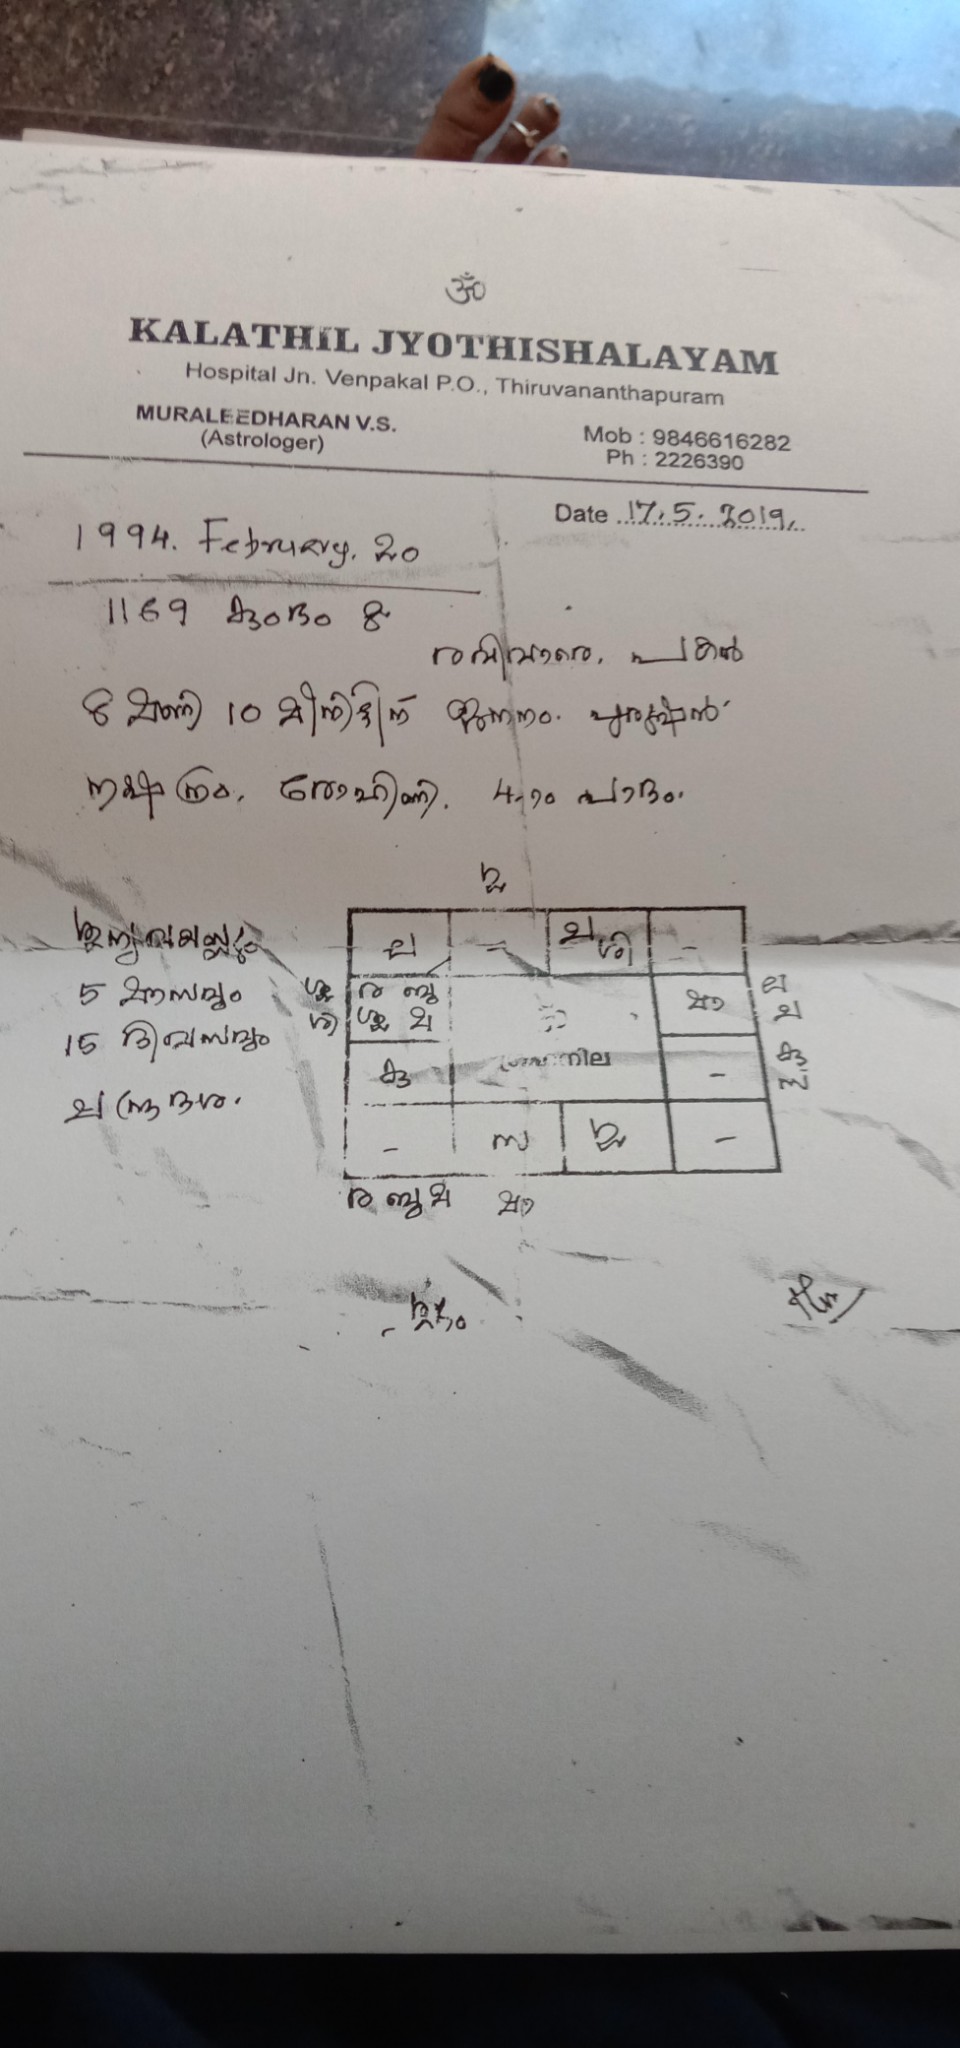 ॐ
KALATHIL JYOTHISHALAYAM
Hospital Jn. Venpakal P.O., Thiruvananthapuram
MURALEEDHARAN V.S.
(Astrologer)
Mob : 9846616282
Ph : 2226390
Date 17.5.2019.
1994. February. 20
1169 കുംഭം 8
രവിവാരെ. പകൽ
8 മണി 10 മിനിട്ടിന് ജനനം. പുരുഷൻ
നക്ഷത്രം. രോഹിണി. 4-ാം പാദം.
5 മാസവും
15 ദിവസവും
ചന്ദ്രദശ.
ല - ച ശി -
ര ബു
മാ
കു ഗ്രഹനില -
- സ -
ര ബു മ മാ